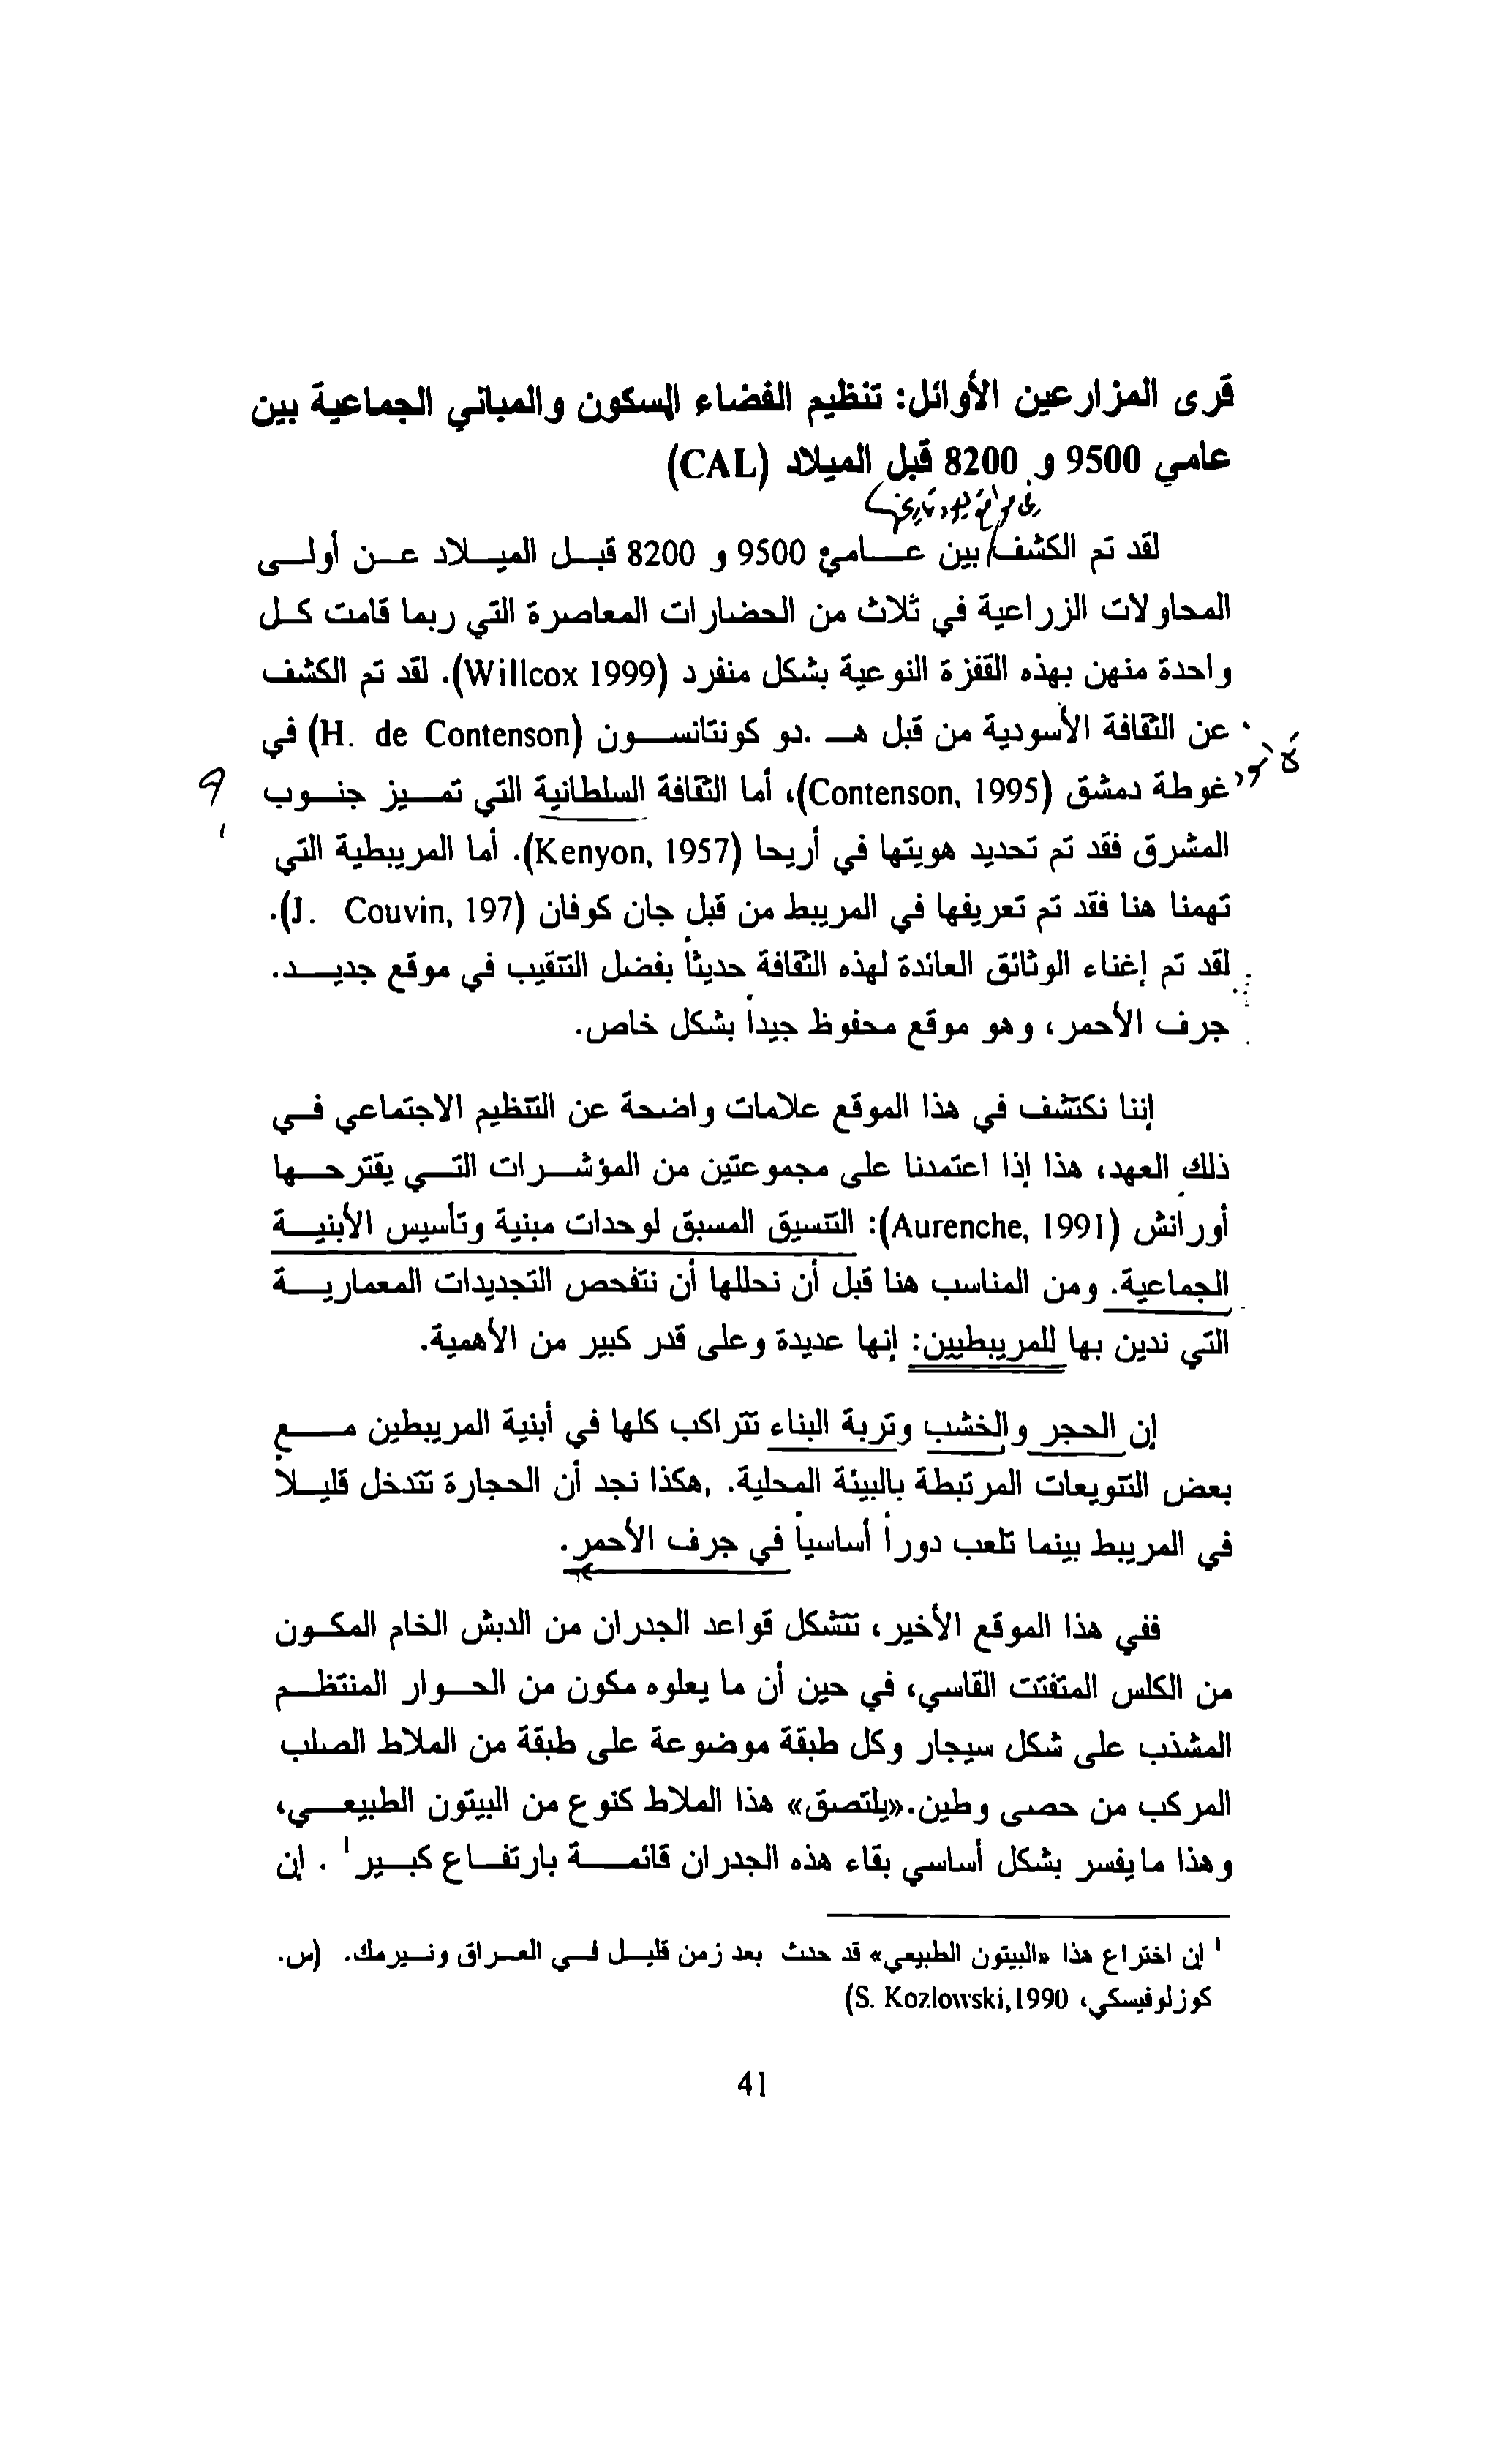 قرى المزارعين الأوائل: تنظيم الفضاء السكون والمباني الجماعية بين
عامي 9500 و 8200 قبل الميلاد (CAL)
لقد تم الكشف بين عامي 9500 و 8200 قبل الميلاد عن أولى
المحاولات الزراعية في ثلاث من الحضارات المعاصرة التي ربما قامت كل
واحدة منهن بهذه القفزة النوعية بشكل منفرد (Willcox 1999). لقد تم الكشف
عن الثقافة الأسودية من قبل هـ .دو كونتانسون (H. de Contenson) في
غوطة دمشق (Contenson, 1995)، أما الثقافة السلطانية التي تميز جنوب
المشرق فقد تم تحديد هويتها في أريحا (Kenyon, 1957). أما المريبطية التي
تهمنا هنا فقد تم تعريفها في المريبط من قبل جان كوفان (J. Couvin, 197).
لقد تم إغناء الوثائق العائدة لهذه الثقافة حديثاً بفضل التنقيب في موقع جديد.
جرف الأحمر، وهو موقع محفوظ جيداً بشكل خاص.
إننا نكتشف في هذا الموقع علامات واضحة عن التنظيم الاجتماعي في
ذلك العهد، هذا إذا اعتمدنا على مجموعتين من المؤشرات التي يقترحها
أورانش (Aurenche, 1991): التنسيق المسبق لوحدات مبنية وتأسيس الأبنية
الجماعية. ومن المناسب هنا قبل أن نحللها أن نتفحص التجديدات المعمارية
التي ندين بها للمريبطيين: إنها عديدة وعلى قدر كبير من الأهمية.
إن الحجر والخشب وتربة البناء تتراكب كلها في أبنية المريبطين مع
بعض التنويعات المرتبطة بالبيئة المحلية. ,هكذا نجد أن الحجارة تتدخل قليلاً
في المريبط بينما تلعب دوراً أساسياً في جرف الأحمر.
ففي هذا الموقع الأخير، تتشكل قواعد الجدران من الدبش الخام المكون
من الكلس المتفتت القاسي، في حين أن ما يعلوه مكون من الحوار المنتظم
المشذب على شكل سيجار وكل طبقة موضوعة على طبقة من الملاط الصلب
المركب من حصى وطين.«يلتصق» هذا الملاط كنوع من البيتون الطبيعي،
وهذا ما يفسر بشكل أساسي بقاء هذه الجدران قائمة بارتفاع كبير¹ . إن
¹ إن اختراع هذا «البيتون الطبيعي» قد حدث بعد زمن قليل في العراق ونيرمك. (س.
كوزلوفيسكي، S. Kozlowski,1990)
41